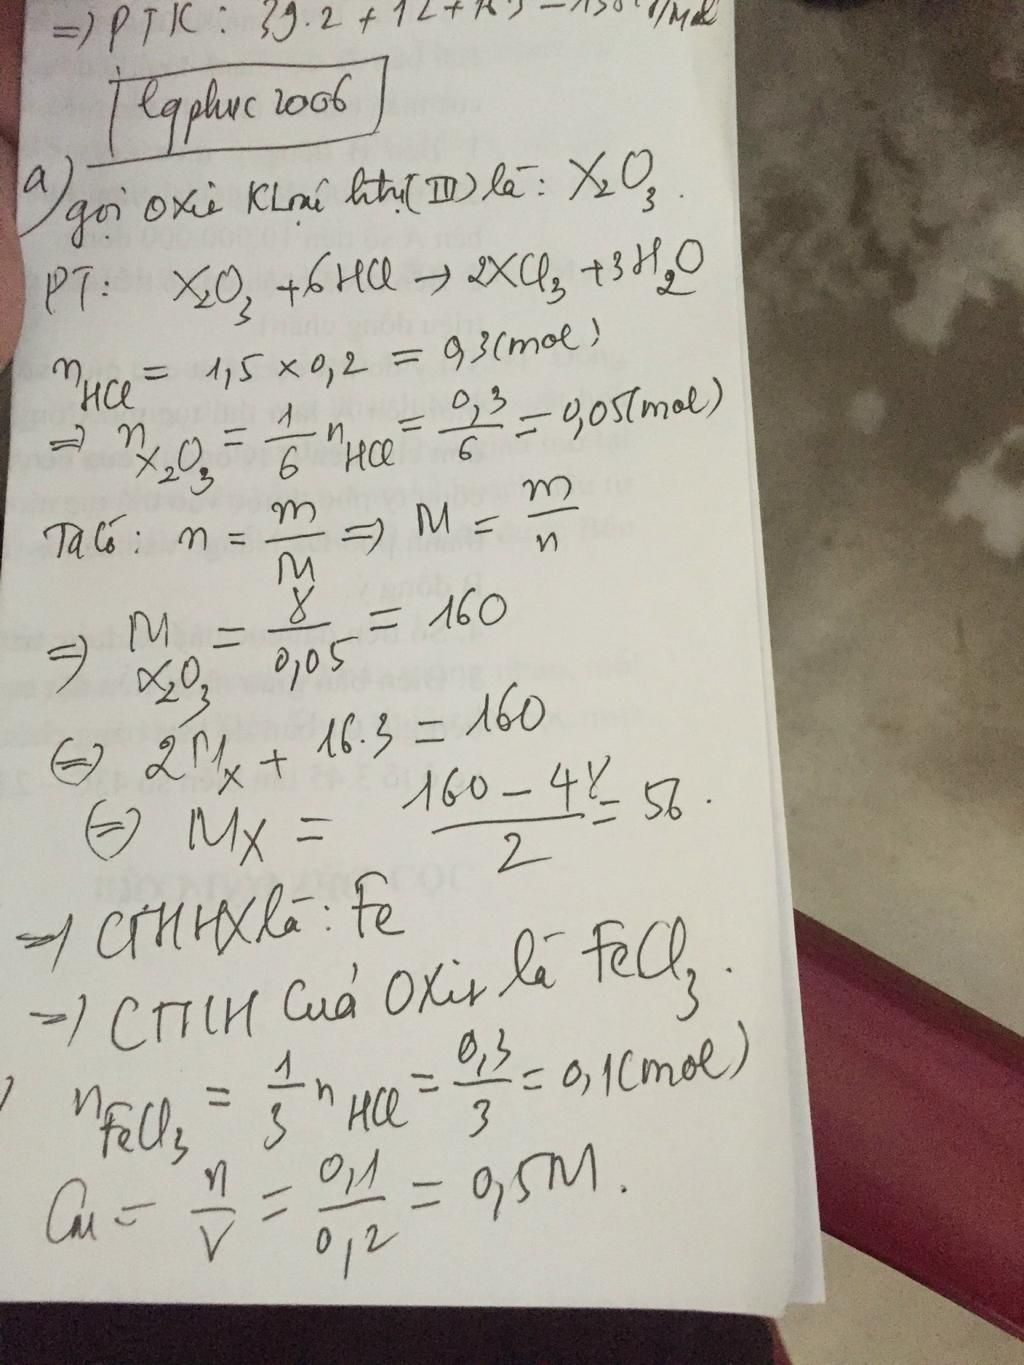 => PTK: 39.2 + 12 + 16.3 = 138 g/mol
lqphuc2006
a) gọi oxit Kloại htrị (III) là: X₂O₃.
PT: X₂O₃ + 6HCl → 2XCl₃ + 3H₂O
nHCl = 1,5 × 0,2 = 0,3 (mol)
=> nX₂O₃ = 1/6 nHCl = 0,3/6 = 0,05 (mol)
Ta có: n = m/M => M = m/n
=> MX₂O₃ = 8/0,05 = 160
<=> 2MX + 16.3 = 160
<=> MX = (160 - 48)/2 = 56.
=> CTHH X là: Fe
=> CTHH của oxit là FeCl₃.
) nFeCl₃ = 1/3 nHCl = 0,3/3 = 0,1 (mol)
CM = n/V = 0,1/0,2 = 0,5M.